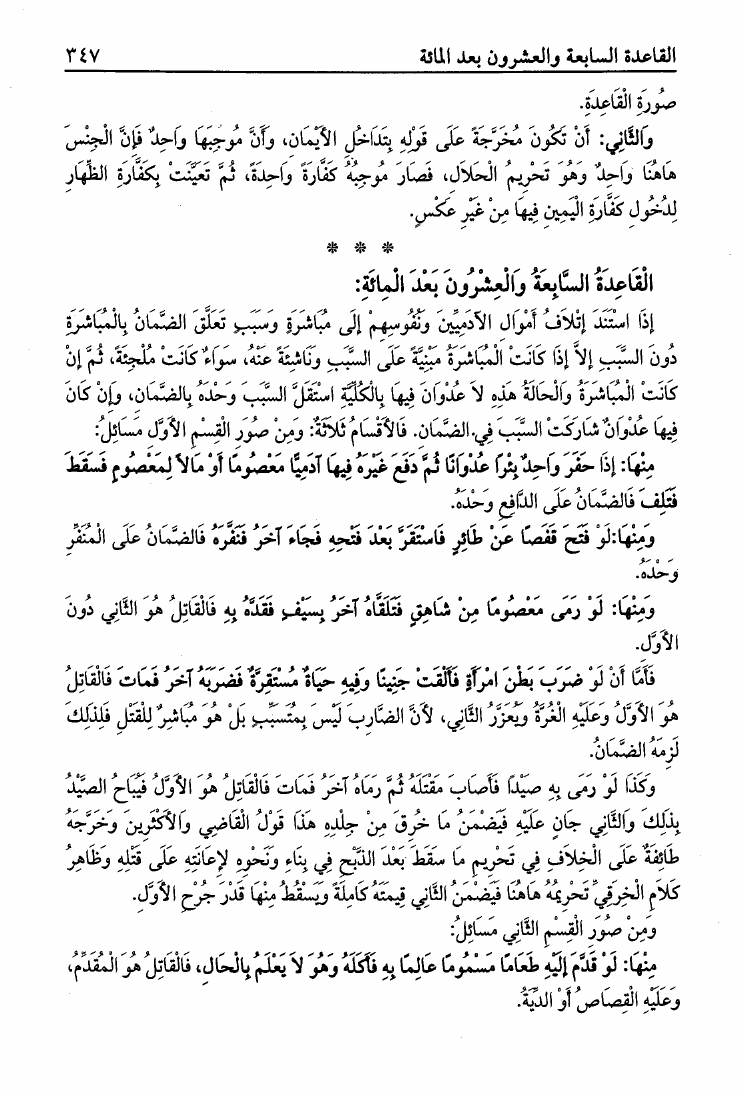 القاعدة السابعة والعشرون بعد المائة ٣٤٧
صُورَةِ الْقَاعِدَةِ.
وَالثَّانِي: أَنْ تَكُونَ مُخَرَّجَةً عَلَى قَوْلِهِ بِتَدَاخُلِ الأَيْمَانِ، وَأَنَّ مُوجِبَهَا وَاحِدٌ فَإِنَّ الْجِنْسَ
هَاهُنَا وَاحِدٌ وَهُوَ تَحْرِيمُ الْحَلاَلِ، فَصَارَ مُوجِبُهُ كَفَّارَةً وَاحِدَةً، ثُمَّ تَعَيَّنَتْ بِكَفَّارَةِ الظِّهَارِ
لِدُخُولِ كَفَّارَةِ الْيَمِينِ فِيهَا مِنْ غَيْرِ عَكْسٍ.
* * *
الْقَاعِدَةُ السَّابِعَةُ وَالْعِشْرُونَ بَعْدَ الْمِائَةِ:
إِذَا اسْتَنَدَ إِتْلاَفُ أَمْوَالِ الآدَمِيِّينَ وَنُفُوسِهِمْ إِلَى مُبَاشَرَةٍ وَسَبَبٍ تَعَلَّقَ الضَّمَانُ بِالْمُبَاشَرَةِ
دُونَ السَّبَبِ إِلاَّ إِذَا كَانَتْ الْمُبَاشَرَةُ مَبْنِيَّةً عَلَى السَّبَبِ وَنَاشِئَةً عَنْهُ، سَوَاءٌ كَانَتْ مُلْجِئَةً، ثُمَّ إِنْ
كَانَتْ الْمُبَاشَرَةُ وَالْحَالَةُ هَذِهِ لاَ عُدْوَانَ فِيهَا بِالْكُلِّيَّةِ اسْتَقَلَّ السَّبَبُ وَحْدَهُ بِالضَّمَانِ، وَإِنْ كَانَ
فِيهَا عُدْوَانٌ شَارَكَتْ السَّبَبَ فِي الضَّمَانِ. فَالأَقْسَامُ ثَلاَثَةٌ: وَمِنْ صُوَرِ الْقِسْمِ الأَوَّلِ مَسَائِلُ:
مِنْهَا: إِذَا حَفَرَ وَاحِدٌ بِئْرًا عُدْوَانًا ثُمَّ دَفَعَ غَيْرَهُ فِيهَا آدَمِيًّا مَعْصُومًا أَوْ مَالاً لِمَعْصُومٍ فَسَقَطَ
فَتَلِفَ فَالضَّمَانُ عَلَى الدَّافِعِ وَحْدَهُ.
وَمِنْهَا:لَوْ فَتَحَ قَفَصًا عَنْ طَائِرٍ فَاسْتَقَرَّ بَعْدَ فَتْحِهِ فَجَاءَ آخَرُ فَنَفَّرَهُ فَالضَّمَانُ عَلَى الْمُنَفِّرِ
وَحْدَهُ.
وَمِنْهَا: لَوْ رَمَى مَعْصُومًا مِنْ شَاهِقٍ فَتَلَقَّاهُ آخَرُ بِسَيْفٍ فَقَدَّهُ بِهِ فَالْقَاتِلُ هُوَ الثَّانِي دُونَ
الأَوَّلِ.
فَأَمَّا أَنْ لَوْ ضَرَبَ بَطْنَ امْرَأَةٍ فَأَلْقَتْ جَنِينًا وَفِيهِ حَيَاةٌ مُسْتَقِرَّةٌ فَضَرَبَهُ آخَرُ فَمَاتَ فَالْقَاتِلُ
هُوَ الأَوَّلُ وَعَلَيْهِ الْغُرَّةُ وَيُعَزَّرُ الثَّانِي، لأَنَّ الضَّارِبَ لَيْسَ بِمُتَسَبِّبٍ بَلْ هُوَ مُبَاشِرٌ لِلْقَتْلِ فَلِذَلِكَ
لَزِمَهُ الضَّمَانُ.
وَكَذَا لَوْ رَمَى بِهِ صَيْدًا فَأَصَابَ مَقْتَلَهُ ثُمَّ رَمَاهُ آخَرُ فَمَاتَ فَالْقَاتِلُ هُوَ الأَوَّلُ فَيُبَاحُ الصَّيْدُ
بِذَلِكَ وَالثَّانِي جَانٍ عَلَيْهِ فَيَضْمَنُ مَا خُرِقَ مِنْ جِلْدِهِ هَذَا قَوْلُ الْقَاضِي وَالأَكْثَرِينَ وَخَرَّجَهُ
طَائِفَةٌ عَلَى الْخِلاَفِ فِي تَحْرِيمِ مَا سَقَطَ بَعْدَ الذَّبْحِ فِي بِنَاءٍ وَنَحْوِهِ لإِعَانَتِهِ عَلَى قَتْلِهِ وَظَاهِرُ
كَلاَمِ الْخِرَقِيِّ تَحْرِيمُهُ هَاهُنَا فَيَضْمَنُ الثَّانِي قِيمَتَهُ كَامِلَةً وَيَسْقُطُ مِنْهَا قَدْرُ جُرْحِ الأَوَّلِ.
وَمِنْ صُوَرِ الْقِسْمِ الثَّانِي مَسَائِلُ:
مِنْهَا: لَوْ قَدَّمَ إِلَيْهِ طَعَامًا مَسْمُومًا عَالِمًا بِهِ فَأَكَلَهُ وَهُوَ لاَ يَعْلَمُ بِالْحَالِ، فَالْقَاتِلُ هُوَ الْمُقَدِّمُ،
وَعَلَيْهِ الْقِصَاصُ أَوْ الدِّيَةُ.